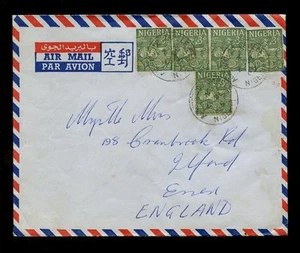 بالبريد الجوى
AIR MAIL
PAR AVION
空郵
NIGERIA
NIGERIA
NIGERIA
NIGERIA
NIGERIA
Myrtle
198 Cranbrook Rd
Ilford
Essex
ENGLAND